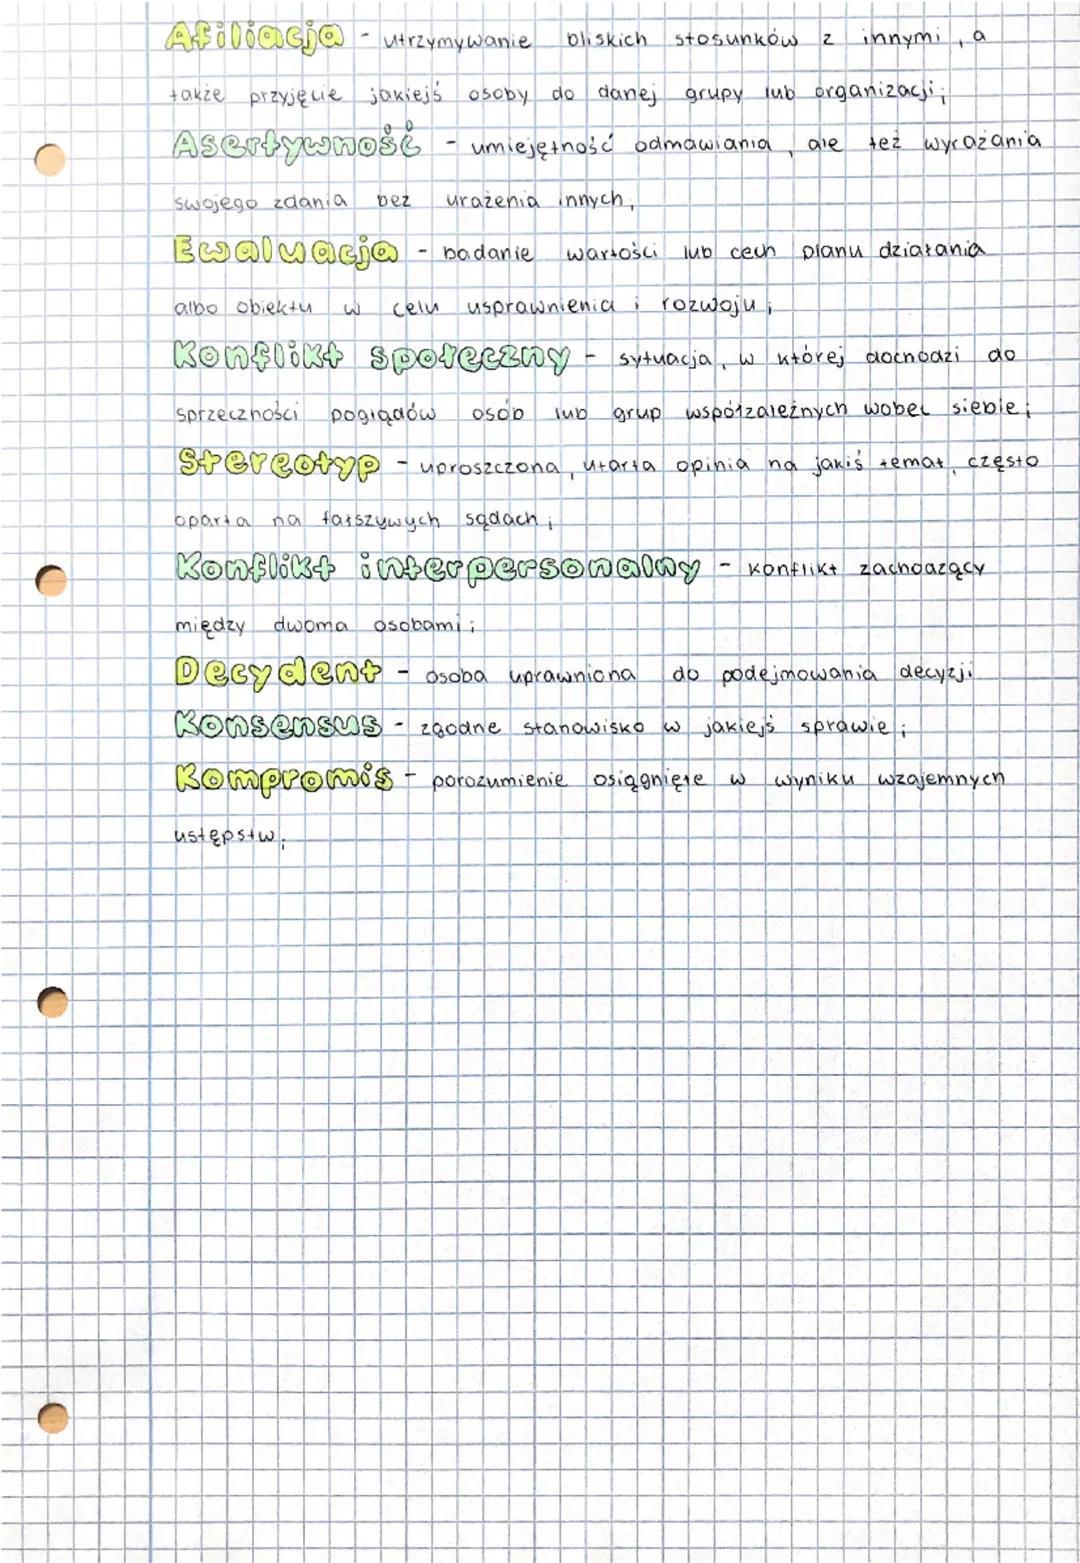 Afiliacja - utrzymywanie bliskich stosunków z innymi, a
także przyjęcie jakiejś osoby do danej grupy lub organizacji;
Asertywność - umiejętność odmawiania, ale też wyrażania
swojego zdania bez urażenia innych,
Ewaluacja - badanie wartości lub cech planu działania
albo obiektu w celu usprawnienia i rozwoju;
Konflikt społeczny - sytuacja, w której dochodzi do
sprzeczności poglądów osób lub grup współzależnych wobec siebie;
Stereotyp - uproszczona, utarta opinia na jakiś temat, często
oparta na fałszywych sądach;
Konflikt interpersonalny - konflikt zachodzący
między dwoma osobami;
Decydent - osoba uprawniona do podejmowania decyzji
Konsensus - zgodne stanowisko w jakiejś sprawie;
Kompromis - porozumienie osiągnięte w wyniku wzajemnych
ustępstw;